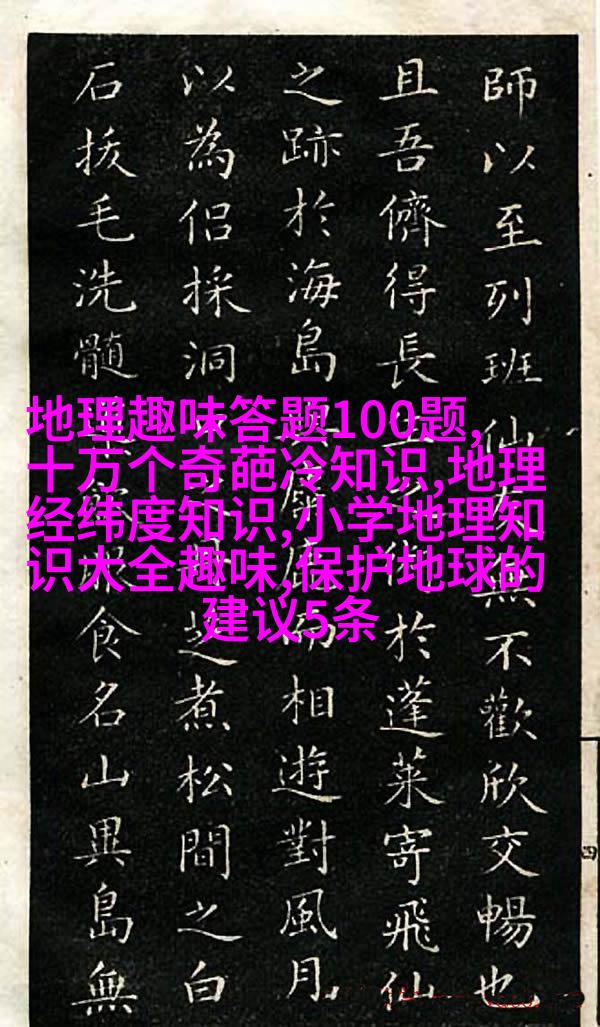 地理趣味答题100题,
十万个奇葩冷知识,地理
经纬度知识,小学地理知
识大全趣味,保护地球的
建议5条
師以至列班仙無不歡欣交暢也
且吾儕得長於蓬萊寄飛仙
之跡於海島相遊對風月
以為侶採洞芝煮松間之白
石拔毛洗髓服食名山異島無